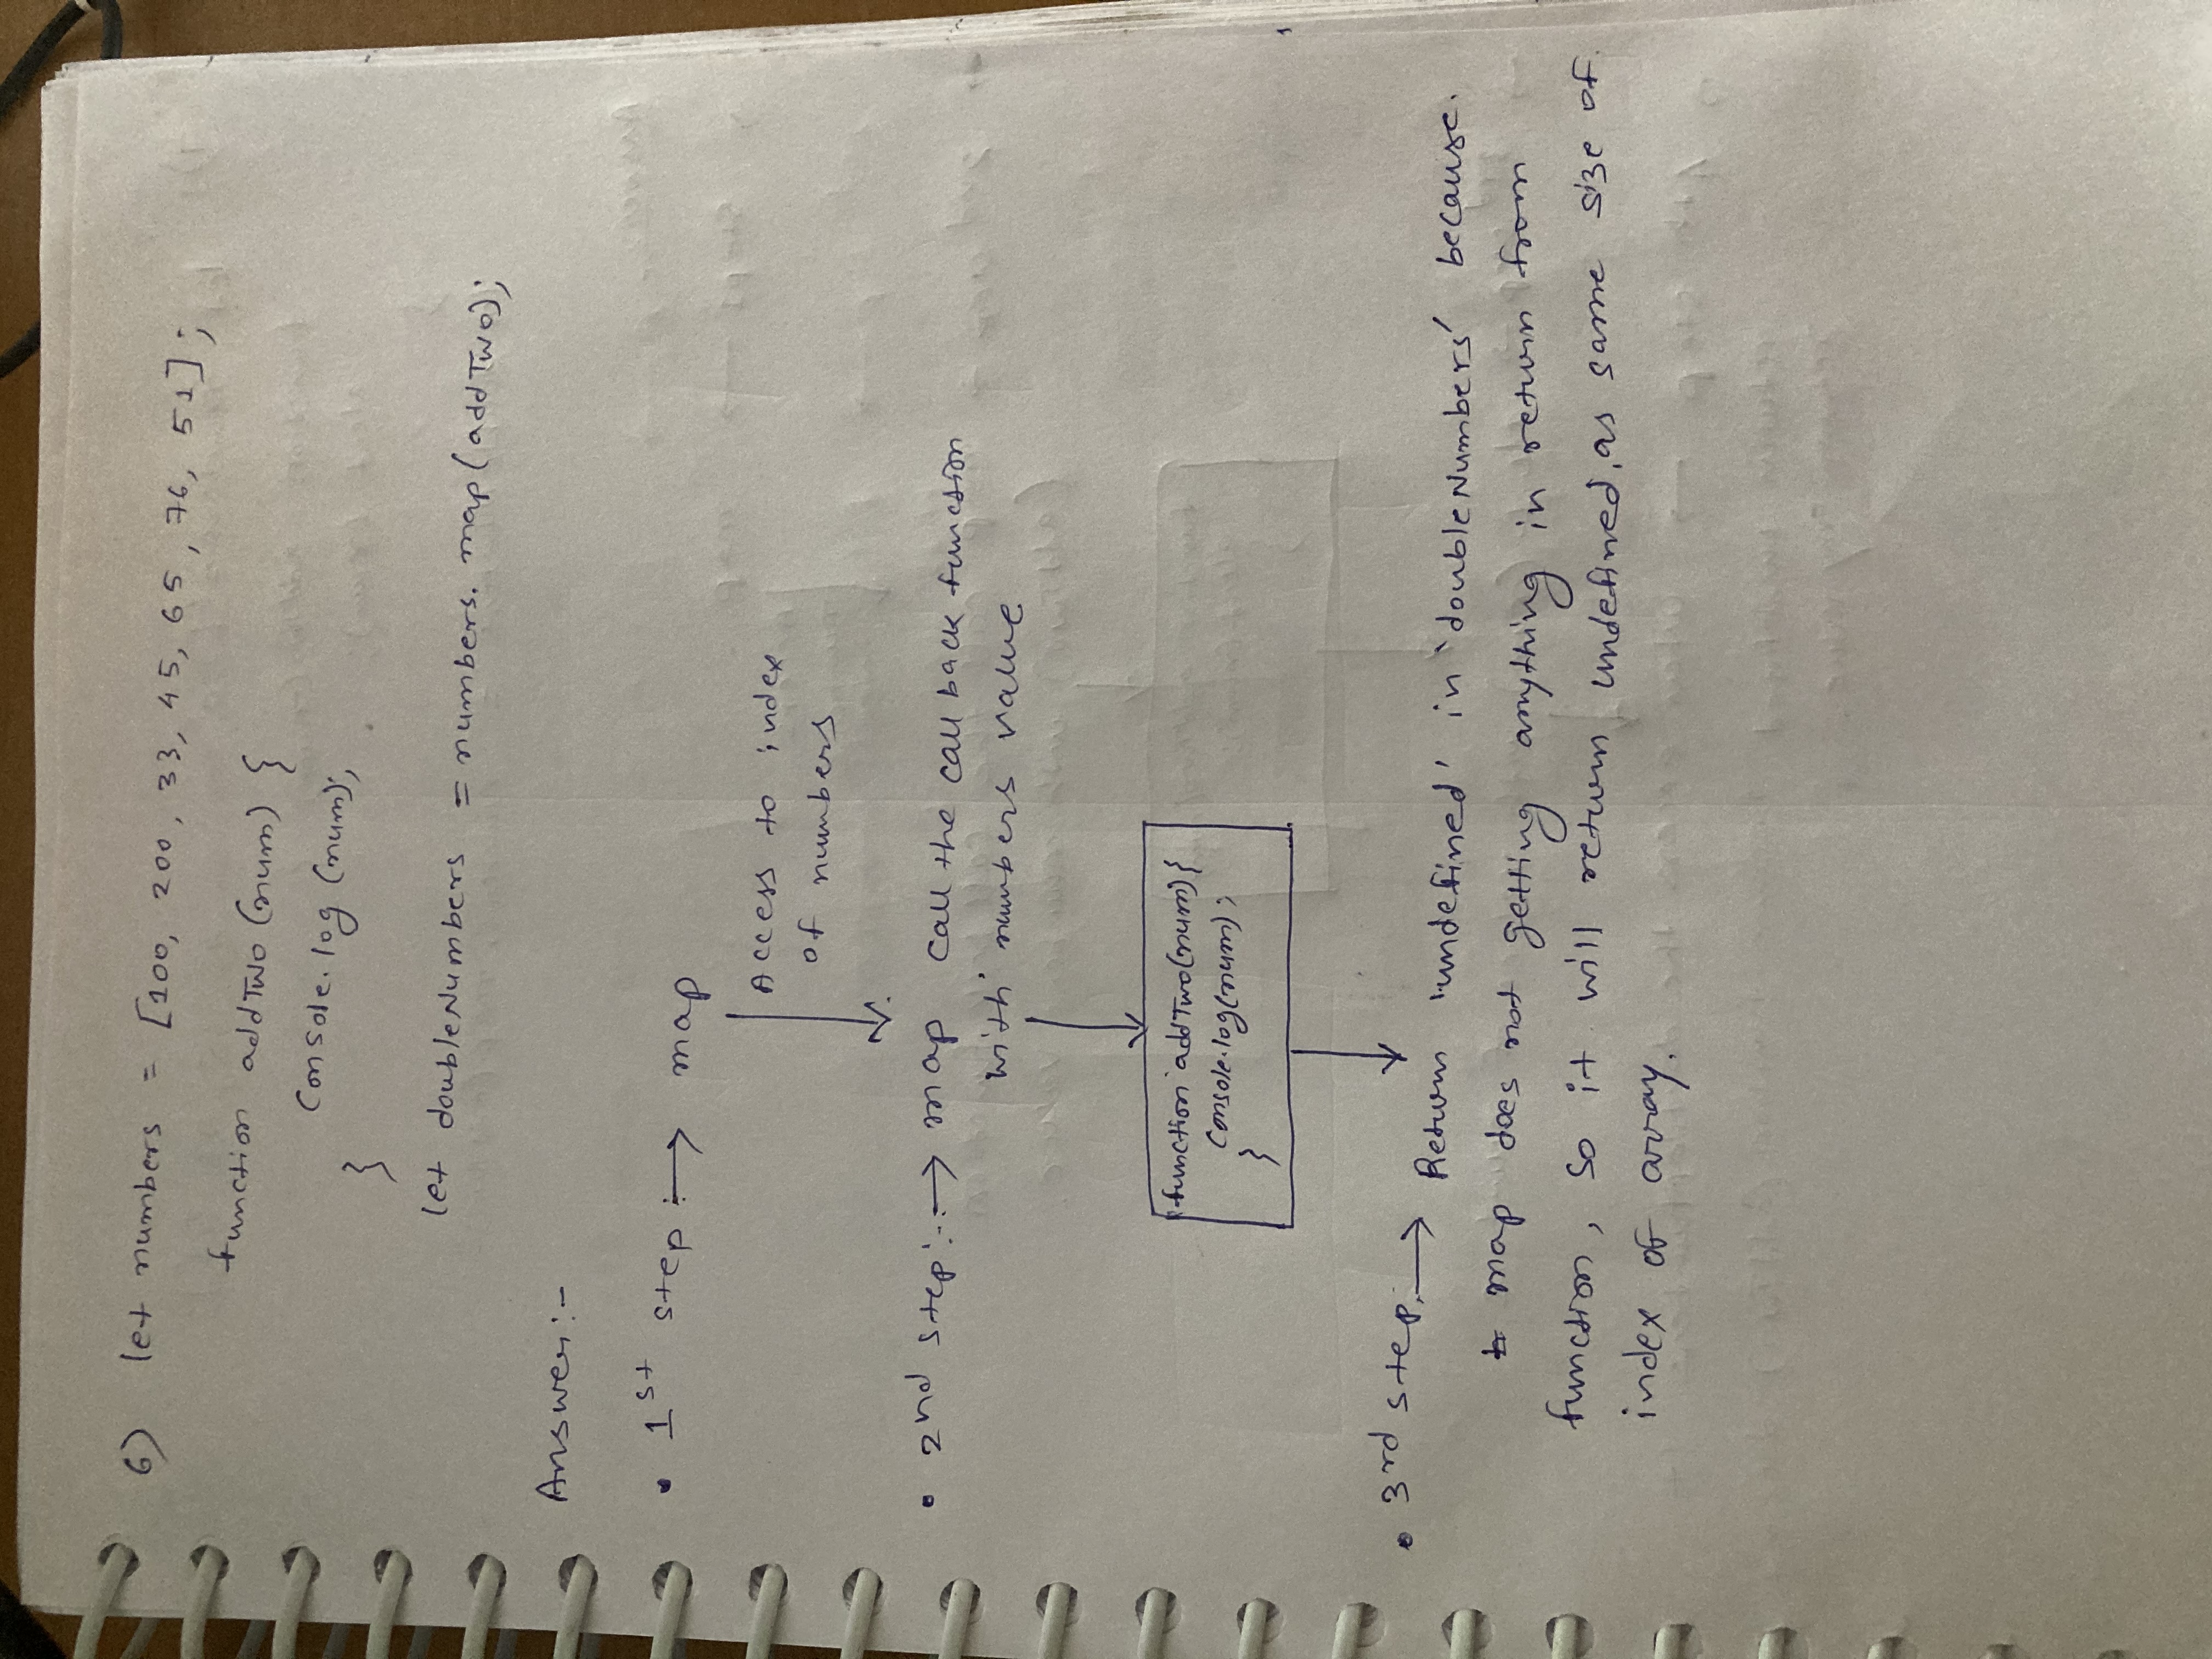 6) let numbers = [100, 200, 33, 45, 65, 76, 51];
function addTwo (num) {
Console.log (num);
}
let doubleNumbers = numbers. map(addTwo);
Answer:-
• 1st step :→ map
Access to index
of numbers
• 2nd step :→ map call the call back function
with numbers value
function addTwo(num){
Console.log(num);
}
• 3rd step :→ Return 'undefined' in 'doubleNumbers' because.
map does not getting anything in return from
function, so it will return undefined, as same size of
index of array.